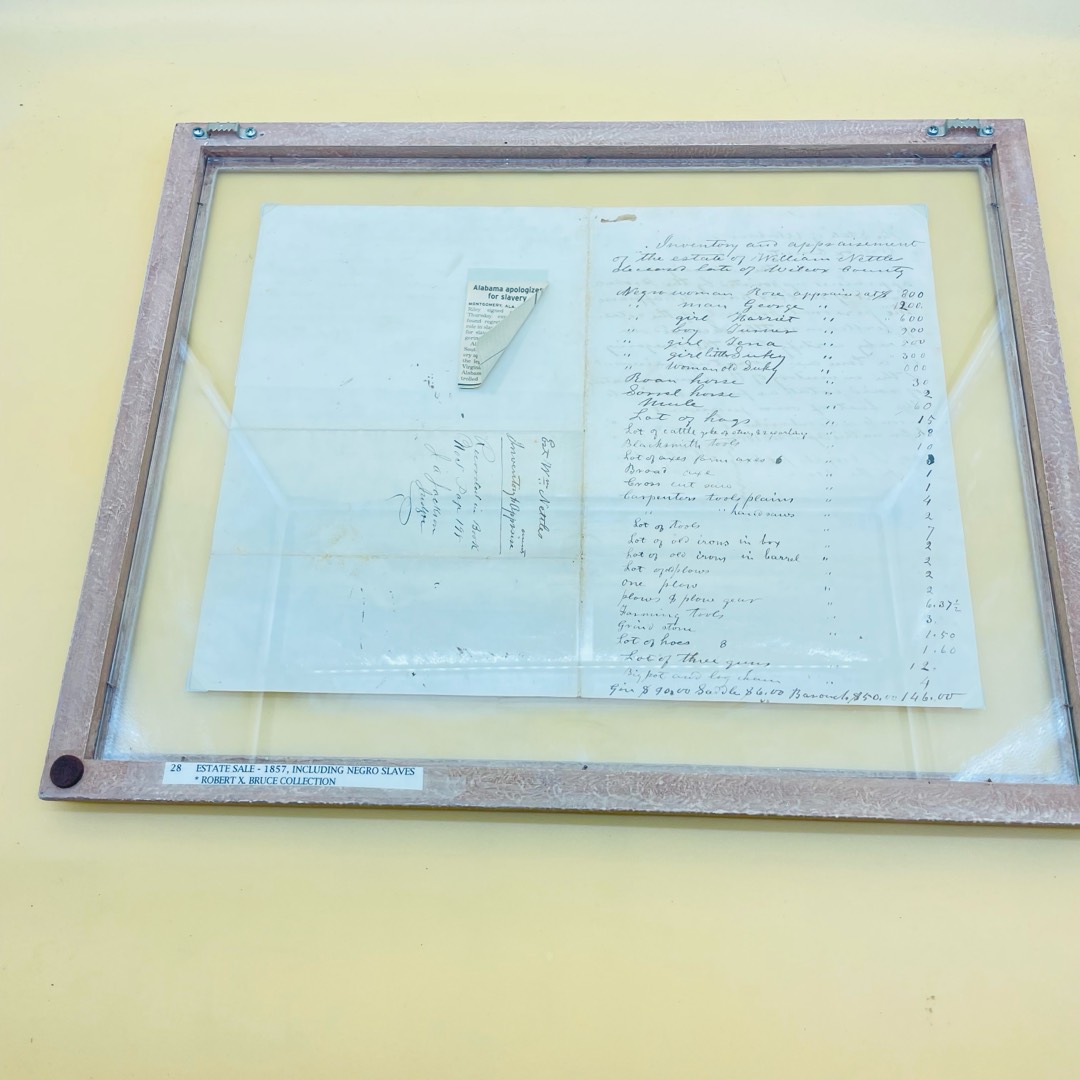 Alabama apologizes
for slavery
MONTGOMERY, ALA.
Riley signed
Thursday
found regre
role in sla
for sla
gorin
Al
Sout
ery a
the in
Virgini
Alabam
trolled
Est Wm Nettles
Inventory & Appraise
ment
Recorded in Book
Page
J A Jackson
Judge
Inventory and appraisement
of the estate of William Nettle
deceased late of Wilcox County
Negro woman Rose appraised at $ 800
" man George " 1200
" girl Harriet " 600
" boy Turner " 900
" girl Tena "
" girl little Suky " 300
" Woman old Suky "
Roan horse " 30
Sorrel horse " 2
Mule " 60
Lot of hogs " 15
Lot of cattle "
Blacksmith tools " 10
Lot of axes farm axes 6 "
Broad axe " 1
Cross cut saw " 1
Carpenters tools plains " 4
" " handsaws " 2
Lot of tools " 7
Lot of old irons in box " 2
Lot of old irons in barrel " 2
Lot of plows " 2
one plow " 2
plows & plow gear " 6.37½
Farming tools " 3.
Grind stone " 1.50
Lot of hoes 8 " 1.60
Lot of three guns " 12.
Big pot and log chain " 4
Gin $ 90.00 Saddle $6.00 Barouch $50.00 146.00
28 ESTATE SALE - 1857, INCLUDING NEGRO SLAVES
* ROBERT X. BRUCE COLLECTION